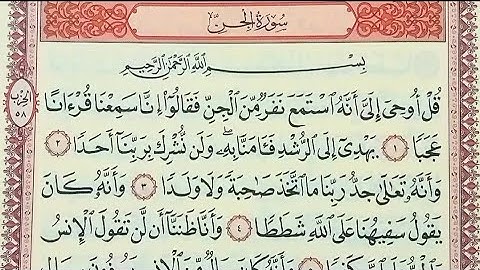 سُورَةُ الجِنِّ
بِسْمِ اللَّهِ الرَّحْمَٰنِ الرَّحِيمِ
قُلْ أُوحِىَ إِلَىَّ أَنَّهُ ٱسْتَمَعَ نَفَرٌ مِّنَ ٱلْجِنِّ فَقَالُوٓا۟ إِنَّا سَمِعْنَا قُرْءَانًا
عَجَبًا ١ يَهْدِىٓ إِلَى ٱلرُّشْدِ فَـَٔامَنَّا بِهِۦ ۖ وَلَن نُّشْرِكَ بِرَبِّنَآ أَحَدًا ٢
وَأَنَّهُۥ تَعَٰلَىٰ جَدُّ رَبِّنَا مَا ٱتَّخَذَ صَٰحِبَةً وَلَا وَلَدًا ٣ وَأَنَّهُۥ كَانَ
يَقُولُ سَفِيهُنَا عَلَى ٱللَّهِ شَطَطًا ٤ وَأَنَّا ظَنَنَّآ أَن لَّن تَقُولَ ٱلْإِنسُ
الحزب
٥٨